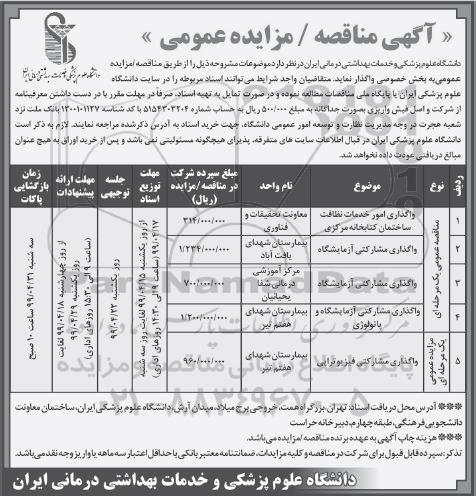 « آگهی مناقصه / مزایده عمومی »
دانشگاه علوم پزشکی و خدمات بهداشتی درمانی ایران
دانشگاه علوم پزشکی و خدمات بهداشتی درمانی ایران در نظر دارد موضوعات مشروحه ذیل را از طریق مناقصه/مزایده
عمومی به بخش خصوصی واگذار نماید. متقاضیان واجد شرایط می توانند اسناد مربوطه را در سایت دانشگاه
علوم پزشکی ایران یا پایگاه ملی مناقصات مطالعه نموده و در صورت تمایل به تهیه اسناد، صرفاً در مهلت مقرر با در دست داشتن معرفینامه
از شرکت و اصل فیش واریزی بصورت جداگانه به مبلغ ۵۰۰/۰۰۰ ریال به حساب شماره ۵۱۵۴۳۰۳۲۰۴ با کد شناسه ۱۳۰۰۱۰۱۱۲۷ بانک ملت نزد
شعبه هجرت در وجه مدیریت نظارت و توسعه امور عمومی دانشگاه، جهت خرید اسناد به آدرس ذکر شده مراجعه نمایند. لازم به ذکر است
دانشگاه علوم پزشکی ایران در قبال اطلاعات سایت های متفرقه، پذیرای هیچگونه مسئولیتی نمی باشد و پس از خرید اوراق به هیچ عنوان
مبالغ دریافتی عودت داده نخواهد شد.
ردیف | نوع | موضوع | نام واحد | مبلغ سپرده شرکت در مناقصه/مزایده (ریال) | مهلت توزیع اسناد | جلسه توجیهی | مهلت ارائه پیشنهادات | زمان بازگشایی پاکات
مناقصه عمومی یک مرحله ای
۱ | واگذاری امور خدمات نظافت ساختمان کتابخانه مرکزی | معاونت تحقیقات و فناوری | ۳۱۴/۰۰۰/۰۰۰
۲ | واگذاری مشارکتی آزمایشگاه | بیمارستان شهدای یافت آباد | ۱/۲۳۴/۰۰۰/۰۰۰
۳ | واگذاری مشارکتی آزمایشگاه | مرکز آموزشی درمانی شفا یحیائیان | ۷۰۰/۰۰۰/۰۰۰
۴ | واگذاری مشارکتی آزمایشگاه و پاتولوژی | بیمارستان شهدای هفتم تیر | ۱/۲۰۰/۰۰۰/۰۰۰
مزایده عمومی یک مرحله ای
۵ | واگذاری مشارکتی فیزیوتراپی | بیمارستان شهدای هفتم تیر | ۹۶۰/۰۰۰/۰۰۰
از روز یکشنبه ۹۹/۰۴/۱۵ لغایت روز سه شنبه ۹۹/۰۴/۱۷ (ساعت ۹ الی ۱۵:۳۰ روزهای اداری)
روز یکشنبه ۹۹/۰۴/۲۲
از روز چهارشنبه ۹۹/۰۴/۱۸ لغایت روز یکشنبه ۹۹/۰۴/۲۹ (ساعت ۹ الی ۱۵:۳۰ روزهای اداری)
سه شنبه ۹۹/۰۴/۳۱ ساعت ۱۰ صبح
*** آدرس محل دریافت اسناد: تهران، بزرگراه همت، خروجی برج میلاد، میدان آرش، دانشگاه علوم پزشکی ایران، ساختمان معاونت
دانشجویی فرهنگی، طبقه چهارم، دبیرخانه حراست
*** هزینه چاپ آگهی به عهده برنده مناقصه/مزایده می باشد.
تذکر: سپرده قابل قبول برای شرکت در مناقصه و کلیه مزایدات، ضمانتنامه معتبر بانکی با حداقل اعتبار سه ماهه یا واریز وجه نقد می باشد.
دانشگاه علوم پزشکی و خدمات بهداشتی درمانی ایران
ParsNamadData
۰۲۱-۸۸۳۴۹۶۷۰-۵